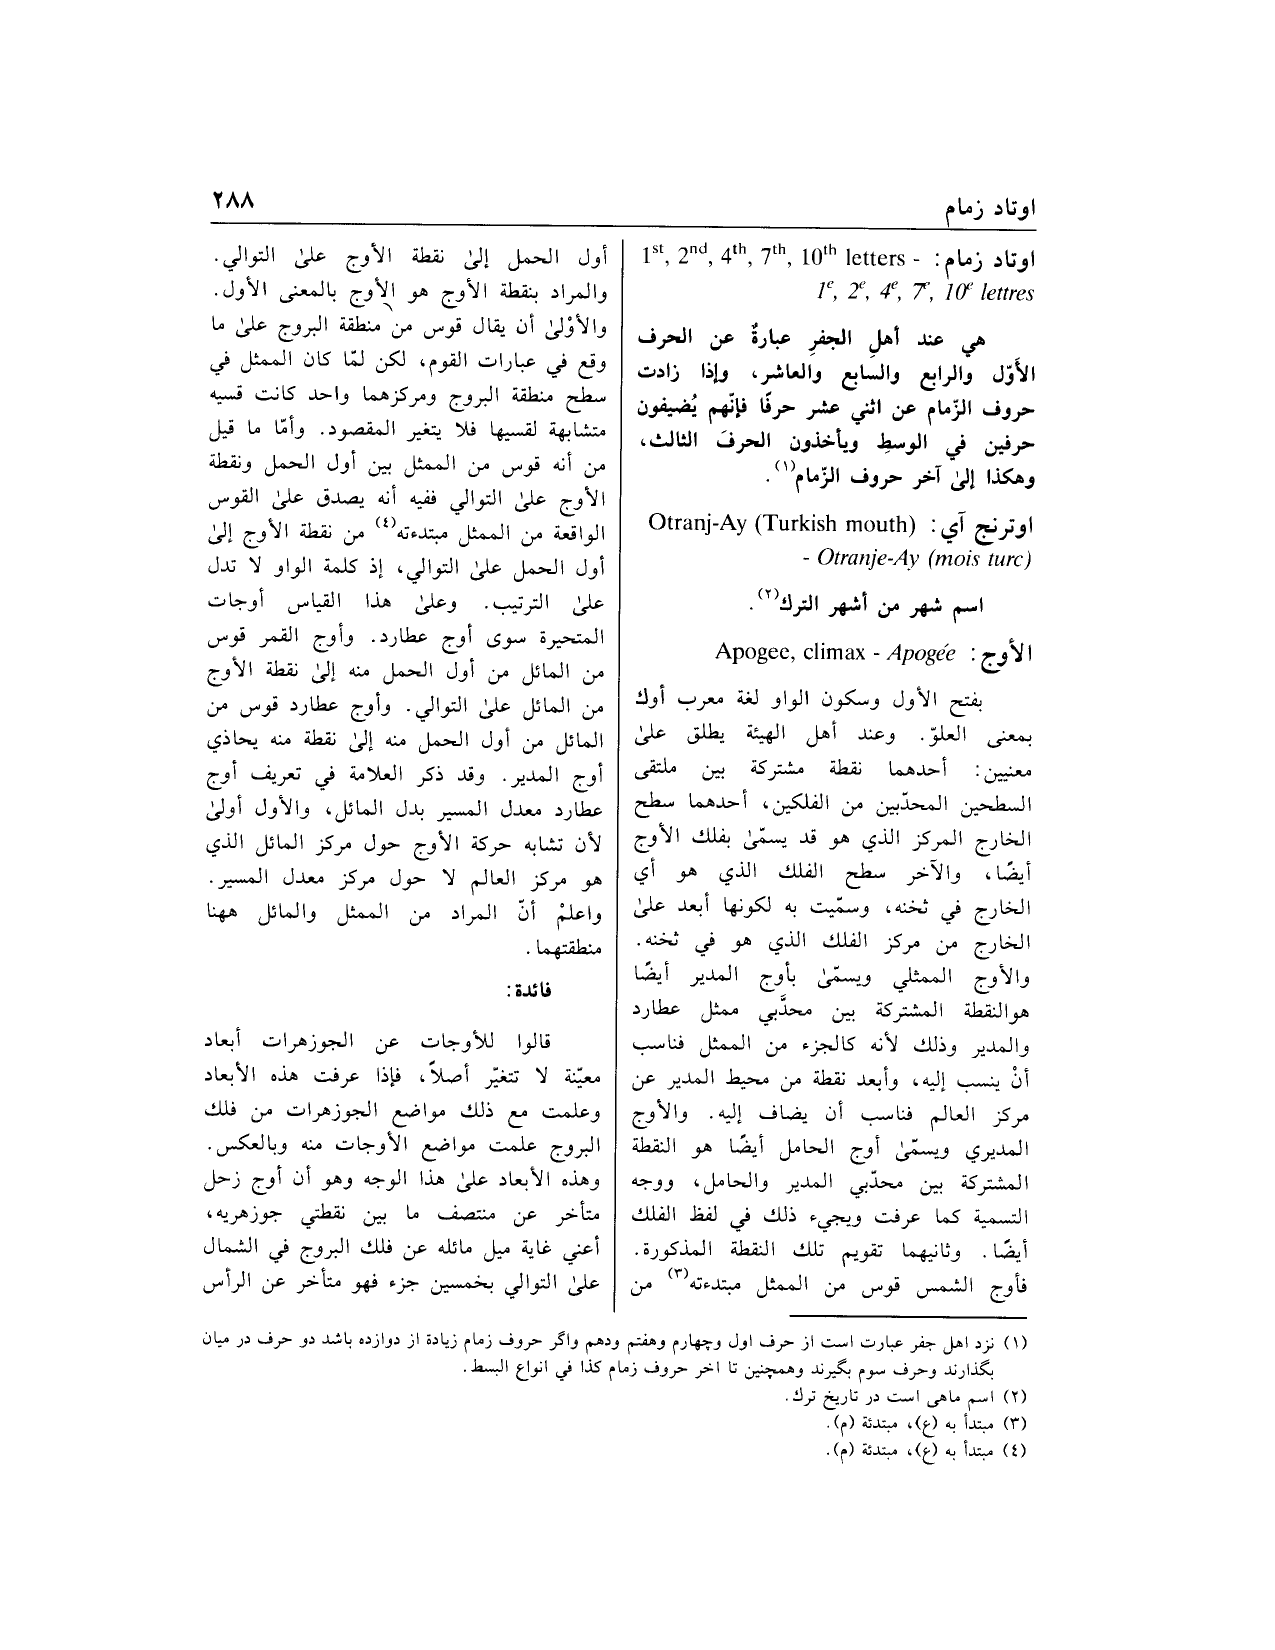 اوتاد زمام
٢٨٨
اوتاد زمام: 1st, 2nd, 4th, 7th, 10th letters -
1e, 2e, 4e, 7e, 10e lettres
هي عند أهلِ الجفرِ عبارةٌ عن الحرف
الأَوّل والرابع والسابع والعاشر، وإذا زادت
حروف الزّمام عن اثني عشر حرفًا فإنّهم يُضيفون
حرفين في الوسطِ ويأخذون الحرفَ الثالث،
وهكذا إلىٰ آخر حروف الزّمام(١).
اوترنج آي: Otranj-Ay (Turkish mouth)
- Otranje-Ay (mois turc)
اسم شهر من أشهر الترك(٢).
الأوج: Apogee, climax - Apogée
بفتح الأول وسكون الواو لغة معرب أوك
بمعنى العلوّ. وعند أهل الهيئة يطلق علىٰ
معنيين: أحدهما نقطة مشتركة بين ملتقى
السطحين المحدّبين من الفلكين، أحدهما سطح
الخارج المركز الذي هو قد يسمّىٰ بفلك الأوج
أيضًا، والآخر سطح الفلك الذي هو أي
الخارج في ثخنه، وسمّيت به لكونها أبعد علىٰ
الخارج من مركز الفلك الذي هو في ثخنه.
والأوج الممثلي ويسمّىٰ بأوج المدير أيضًا
هوالنقطة المشتركة بين محدَّبي ممثل عطارد
والمدير وذلك لأنه كالجزء من الممثل فناسب
أنْ ينسب إليه، وأبعد نقطة من محيط المدير عن
مركز العالم فناسب أن يضاف إليه. والأوج
المديري ويسمّىٰ أوج الحامل أيضًا هو النقطة
المشتركة بين محدّبي المدير والحامل، ووجه
التسمية كما عرفت ويجيء ذلك في لفظ الفلك
أيضًا. وثانيهما تقويم تلك النقطة المذكورة.
فأوج الشمس قوس من الممثل مبتدءته(٣) من
أول الحمل إلىٰ نقطة الأوج علىٰ التوالي.
والمراد بنقطة الأوج هو الأوج بالمعنى الأول.
والأوْلىٰ أن يقال قوس من منطقة البروج علىٰ ما
وقع في عبارات القوم، لكن لمّا كان الممثل في
سطح منطقة البروج ومركزهما واحد كانت قسيه
متشابهة لقسيها فلا يتغير المقصود. وأمّا ما قيل
من أنه قوس من الممثل بين أول الحمل ونقطة
الأوج علىٰ التوالي ففيه أنه يصدق علىٰ القوس
الواقعة من الممثل مبتدءته(٤) من نقطة الأوج إلىٰ
أول الحمل علىٰ التوالي، إذ كلمة الواو لا تدل
علىٰ الترتيب. وعلىٰ هذا القياس أوجات
المتحيرة سوى أوج عطارد. وأوج القمر قوس
من المائل من أول الحمل منه إلىٰ نقطة الأوج
من المائل علىٰ التوالي. وأوج عطارد قوس من
المائل من أول الحمل منه إلىٰ نقطة منه يحاذي
أوج المدير. وقد ذكر العلامة في تعريف أوج
عطارد معدل المسير بدل المائل، والأول أولىٰ
لأن تشابه حركة الأوج حول مركز المائل الذي
هو مركز العالم لا حول مركز معدل المسير.
واعلمْ أنّ المراد من الممثل والمائل ههنا
منطقتهما.
فائدة:
قالوا للأوجات عن الجوزهرات أبعاد
معيّنة لا تتغيّر أصلاً، فإذا عرفت هذه الأبعاد
وعلمت مع ذلك مواضع الجوزهرات من فلك
البروج علمت مواضع الأوجات منه وبالعكس.
وهذه الأبعاد علىٰ هذا الوجه وهو أن أوج زحل
متأخر عن منتصف ما بين نقطتي جوزهريه،
أعني غاية ميل مائله عن فلك البروج في الشمال
علىٰ التوالي بخمسين جزء فهو متأخر عن الرأس
(١) نزد اهل جفر عبارت است از حرف اول وچهارم وهفتم ودهم واگر حروف زمام زيادة از دوازده باشد دو حرف در ميان
بگذارند وحرف سوم بگيرند وهمچنين تا اخر حروف زمام كذا في انواع البسط.
(٢) اسم ماهى است در تاريخ ترك.
(٣) مبتدأ به (ع)، مبتدئة (م).
(٤) مبتدأ به (ع)، مبتدئة (م).